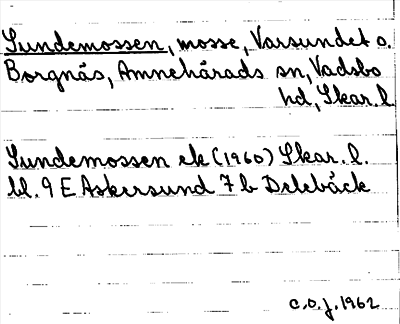 Sundemossen, mosse, Varsundet o.
Borgnäs, Amnehärads sn, Vadsbo
hd, Skar. l.
Sundemossen ek (1960) Skar. l.
bl. 9 E Askersund 7 b Delebäck
C.O.J. 1962